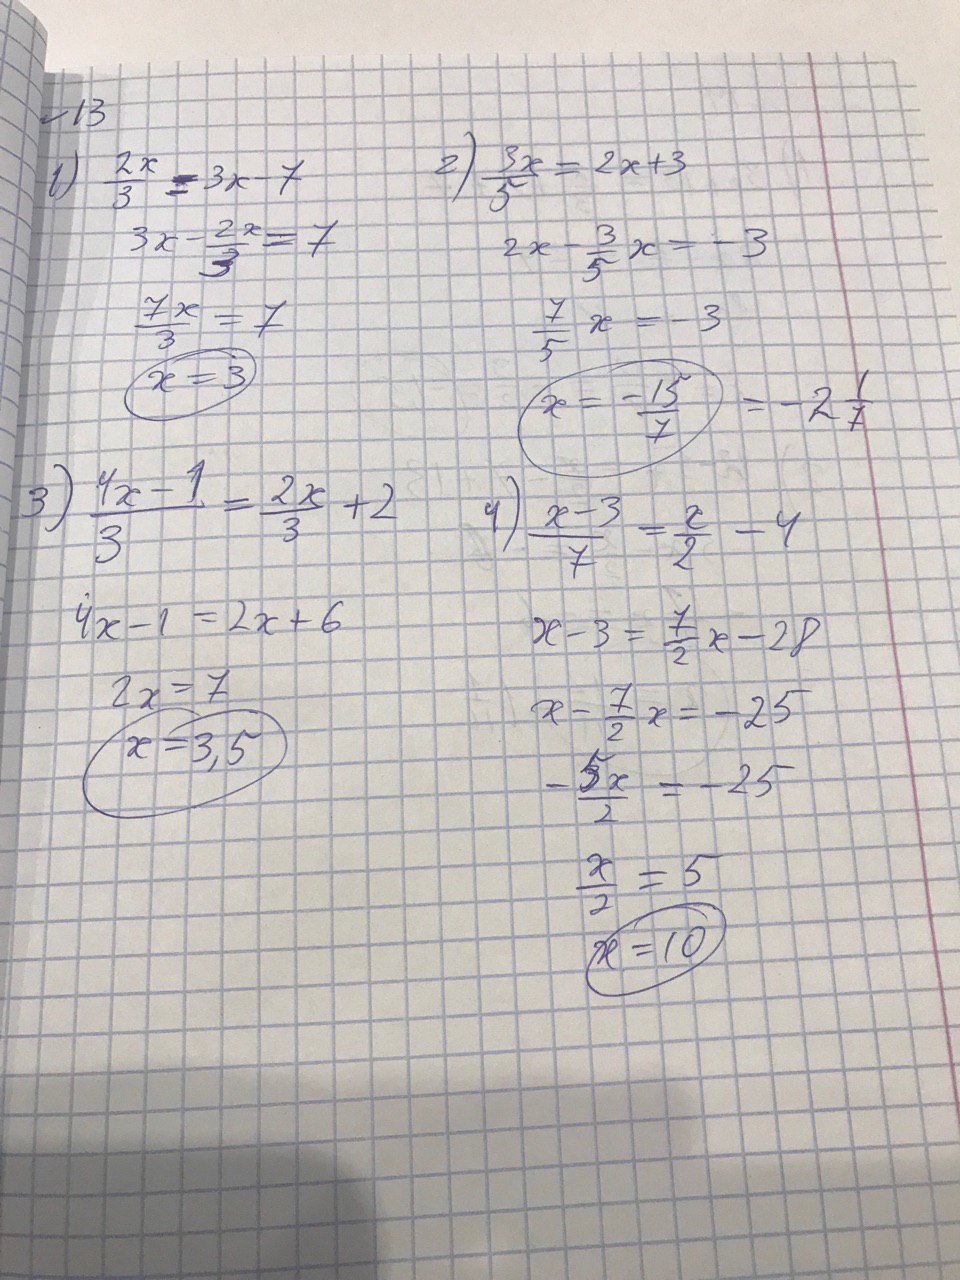 13
1) 2x/3 = 3x - 7
3x - 2x/3 = 7
7x/3 = 7
x = 3
2) 3x/5 = 2x + 3
2x - 3/5 x = -3
7/5 x = -3
x = -15/7 = -2 1/7
3) (4x - 1)/3 = 2x/3 + 2
4x - 1 = 2x + 6
2x = 7
x = 3,5
4) (x - 3)/7 = x/2 - 4
x - 3 = 7/2 x - 28
x - 7/2 x = -25
-5x/2 = -25
x/2 = 5
x = 10